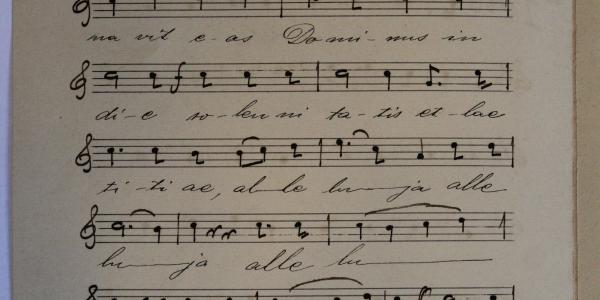 na vit e-os Do mi-nus in
di-e so-len ni ta-tis et-lae
ti-ti ae, al-le lu-ja alle
lu-ja alle lu